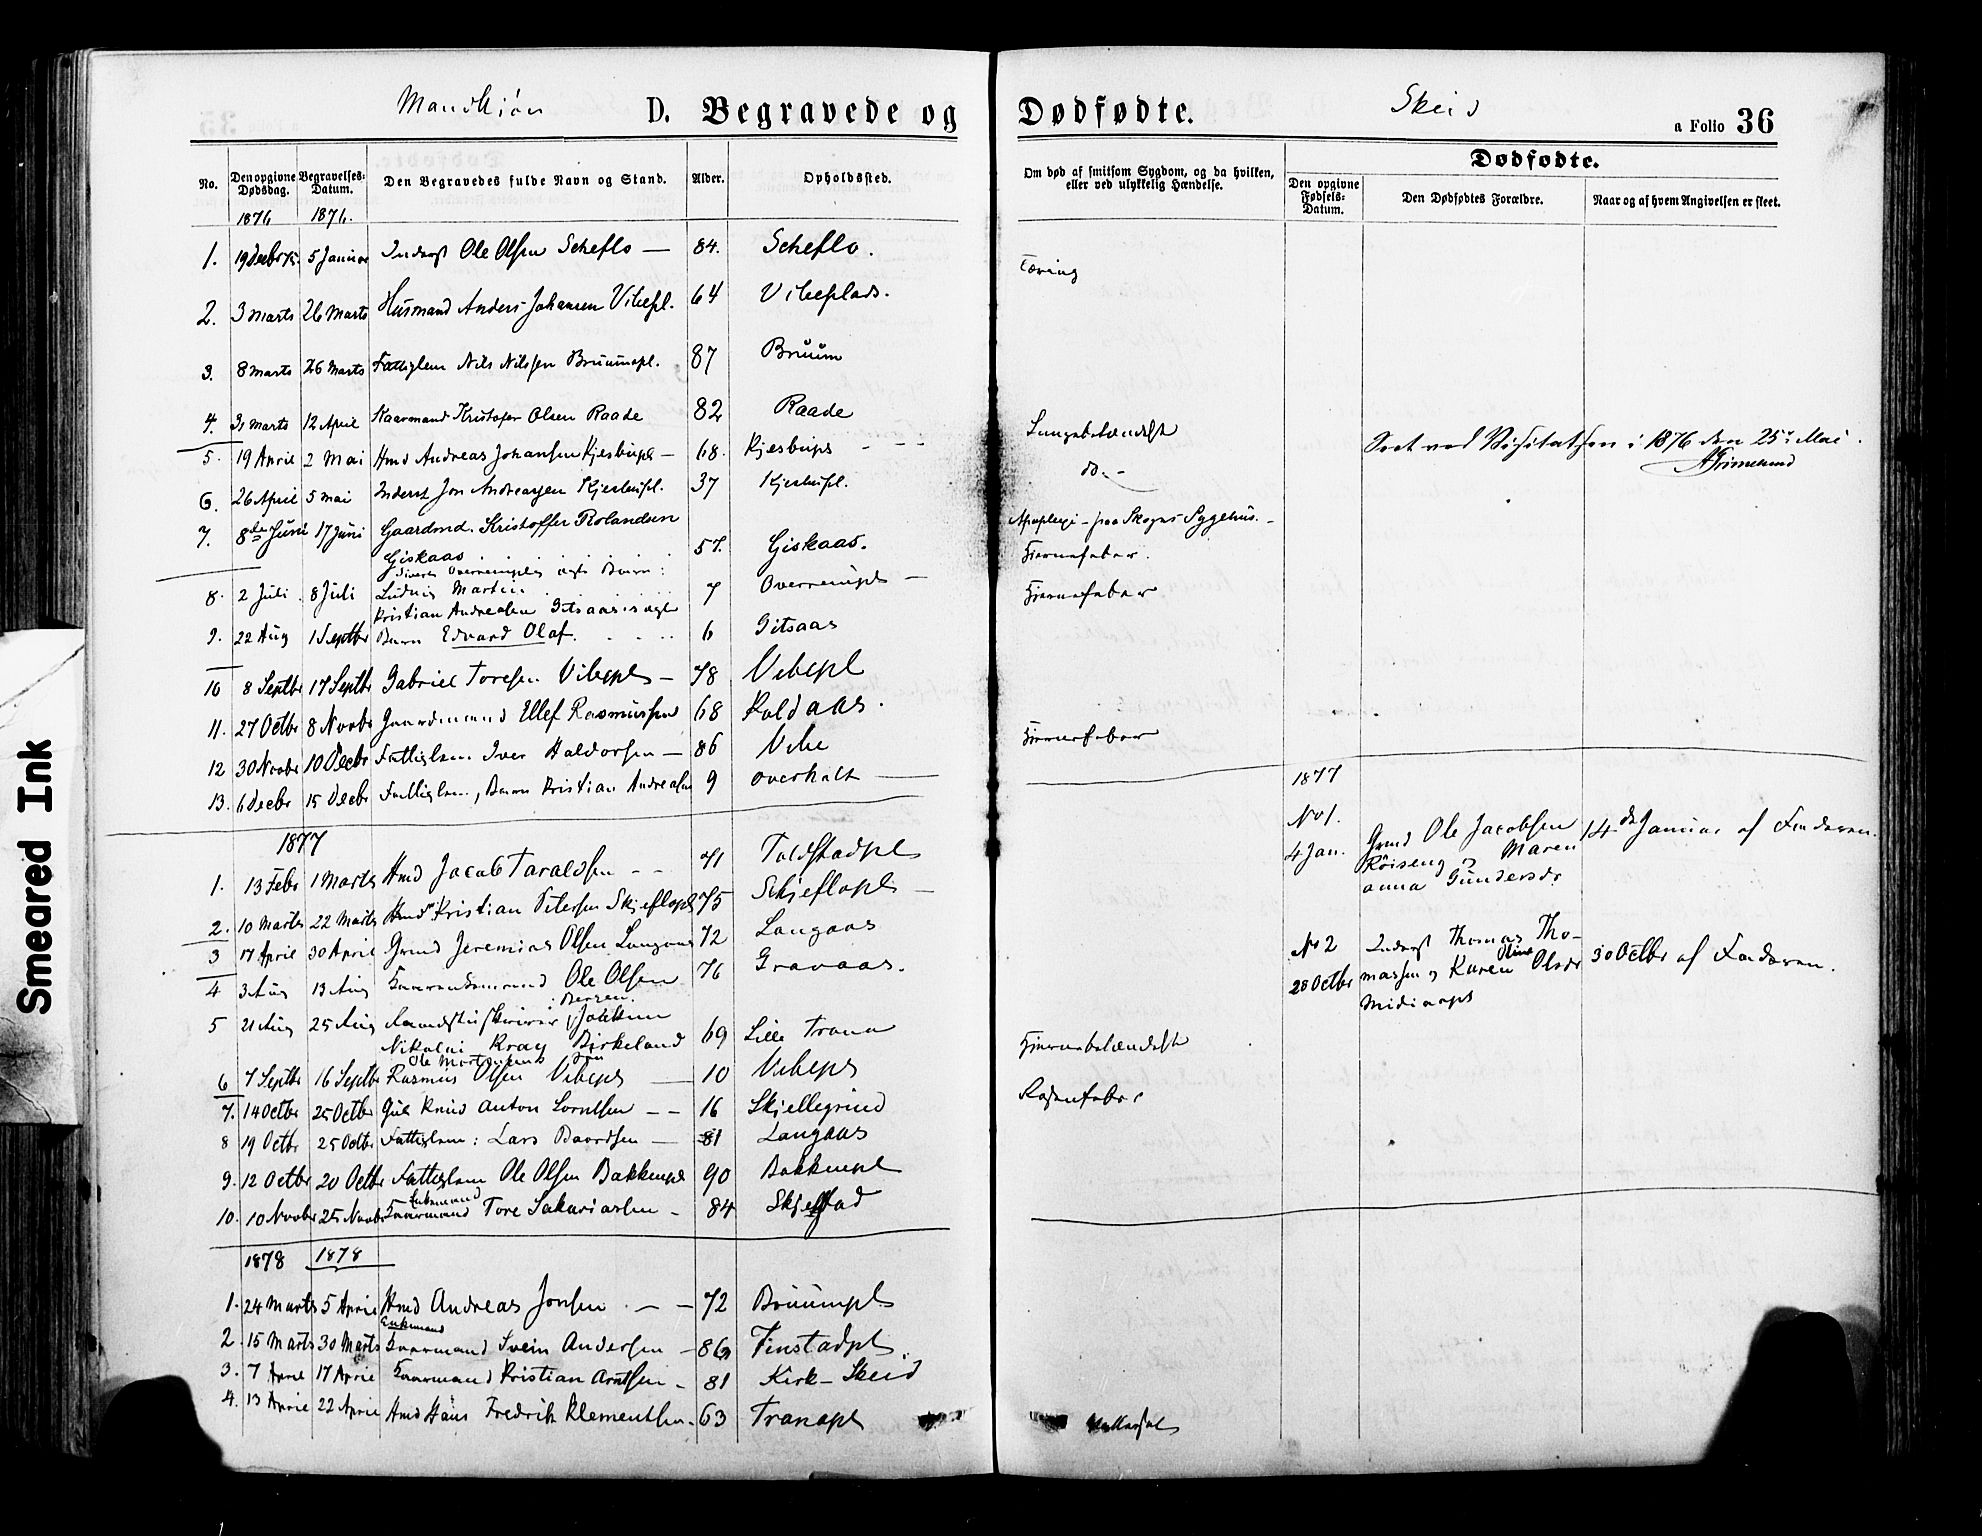 Mandkjøn D. Begravede og Dødfødte. Skeid a Folio 36
No. Den opgivne Dødsdag. Begravelses-Datum. Den Begravedes fulde Navn og Stand. Alder. Opholdssted.
Om død af smitsom Sygdom, og da hvilken, eller ved ulykkelig Hændelse.
Dødfødte.
Den opgivne Fødsels-Datum. Den Dødfødtes Forældre. Naar og af hvem Angivelsen er skeet.
1876 1876.
1. 19 Decbr 75. 5 Januar Inderst Ole Olsen Scheflo — 84. Scheflo.
Tæring
2. 3 Marts 26 Marts Husmand Anders Johansen Vibepl. 64 Vibeplads.
3. 8 Marts 26 Marts Fattiglem Nils Nilssen Bruumspl. 87 Bruum
4. 31 Marts 12 April Kaarmand Kristofer Olsen Raade 82 Raade
Lungebetændelse
5. 19 April 2 Mai Hmd Andreas Johansen — 68.
do. -
6. 26 April 5 Mai Inderst Jon Andreassen 37
Seet ved Visitatsen i 1876 den 25de Mai.
AGrimelund
7. 8de Juni 17 Juni Gaardmd. Kristoffer Rolandsen
Giskaas 57. Giskaas.
Apoplexi - paa Skogns Sygehus. -
Hjernefeber.
8. 2 Juli 8 Juli Ludvig Martin 7
Hjernefeber
Kristian Andreasen Gitsaas's ægte
9. 22 Aug 1 Septbr Barn Edvard Olaf. 6 Gitsaas
10 8 Septbr 17 Septbr Gabriel Toresen Vibepl — 78 Vibepl
11. 27 Octbr 8 Novbr Gaardmand Ellef Rasmussen 68 Koldaas.
12 30 Novbr 10 Decbr Fattiglem Iver Haldorsen — 86 Vibe
Hjernefeber
13. 6 Decbr 15 Decbr Fattiglem, Barn Kristian Andreasen 9 Overhalt
1877
1. 13 Febr 1 Marts Hmd Jacob Taraldsen - - 71
2. 10 Marts 22 Marts Hmd Kristian Petersen Skjeflopl 75 Skjeflopl —
3 17 April 30 April Grmd Jeremias Olsen Langaas 72 Langaas
4 3 Aug 13 Aug Ole Olsen 76 Gravaas.
5 21 Aug 25 Aug Joakkim
Nikolai Krag Birkeland 69 Lille Trana
Ole Mortensens Søn
6 7 Septbr 16 Septbr Rasmus Olsen Vibepl — 10 Vibepl
Hjernebetændelse
7. 14 Octbr 25 Octbr Gut Knud Anton Lorntsen - - 16 Skjellegrind
Rosenfeber
8 19 Octbr 25 Octbr Fattiglem: Lars Baardsen — 81 Langaas
9. 12 Octbr 20 Octbr Fattiglem Ole Olsen Bakkenpl 90 Bakkenpl
Enkemand
10. 10 Novbr 25 Novbr Kaarmand Tore Sakariassen - 84 Skjefstad
1877
No 1.
4 Jan. Grmd Ole Jacobsen
Røiseng og Maren
Anna Gundersdr
14de Januar af Faderen.
No 2
28 Octbr Inderst Thomas Thomassen og Karen Oline Olsdr
30 Octbr af Faderen.
1878 1878
1. 24 Marts 5 April Hmd Andreas Jonsen — 72 Bruumpl.
Enkemand
2. 15 Marts 30 Marts Kaarmand Svein Andersen - 86 Finstadpl.
3. 7 April 17 April Kaarmand Kristian Arntsen - 81 Kirk-Skeid
4. 13 April 22 April Hmd Hans Fredrik Klementsen - 63 Tranapl
Smeared Ink